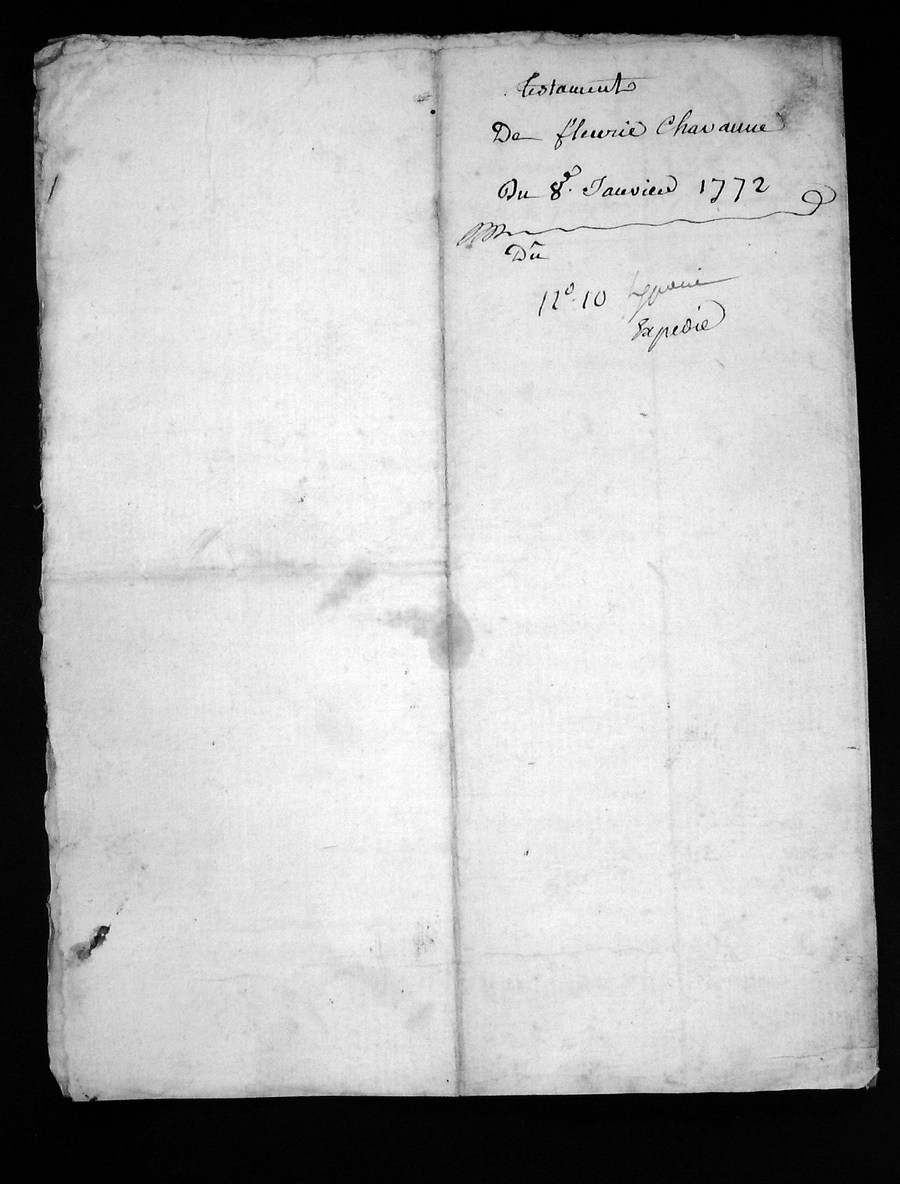 Testament
De fleurie Chavanne
Du 8e. Janvier 1772
Du
N°. 10
Expedié